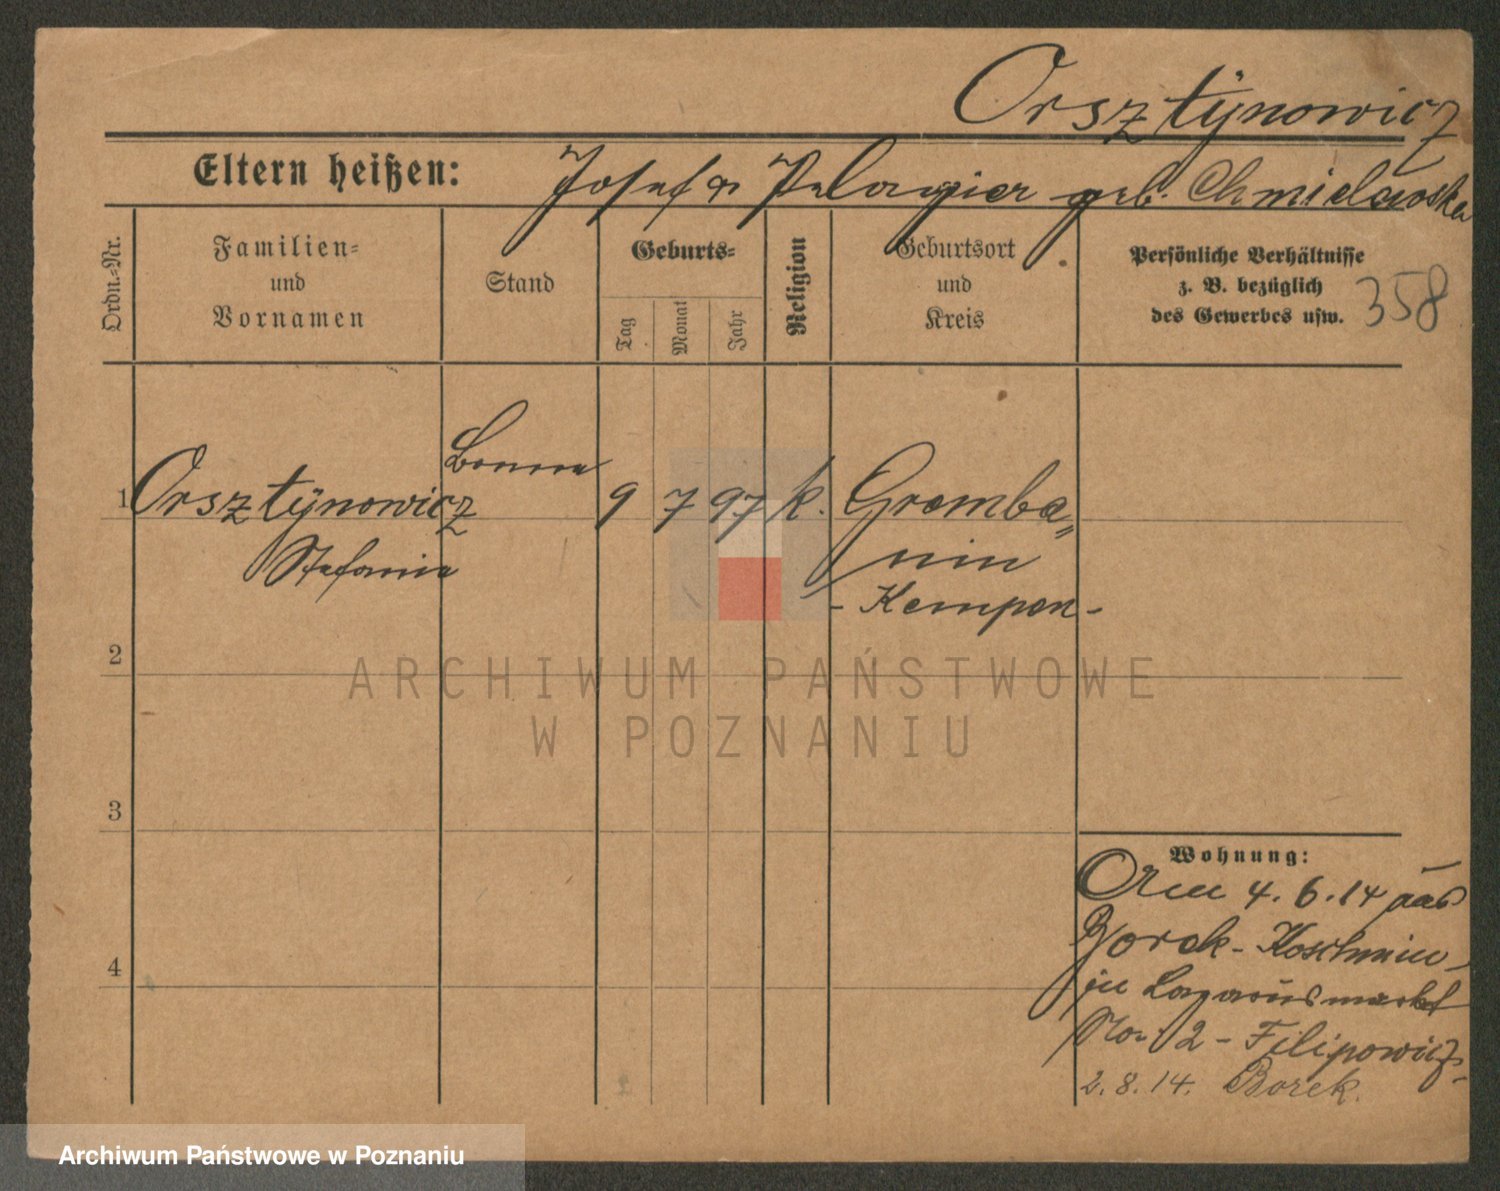 Orsztÿnowicz
Eltern heißen: Josef & Pelagia geb. Chmielewska
Ordn.=Nr.
Familien=
und
Vornamen
Stand
Geburts=
Tag
Monat
Jahr
Religion
Geburtsort
und
Kreis
Persönliche Verhältnisse
z. B. bezüglich
des Gewerbes usw.
358
1 Orsztÿnowicz 9 7 97 k. Gremba„
Stefania nin
- Kempen -
2
3
4
Wohnung:
4.6.14 aus
Borek - Koschmin
in Lazarusmarkt
No 2 - Filipowicz
2.8.14. Borek.
ARCHIWUM PAŃSTWOWE
W POZNANIU
Archiwum Państwowe w Poznaniu